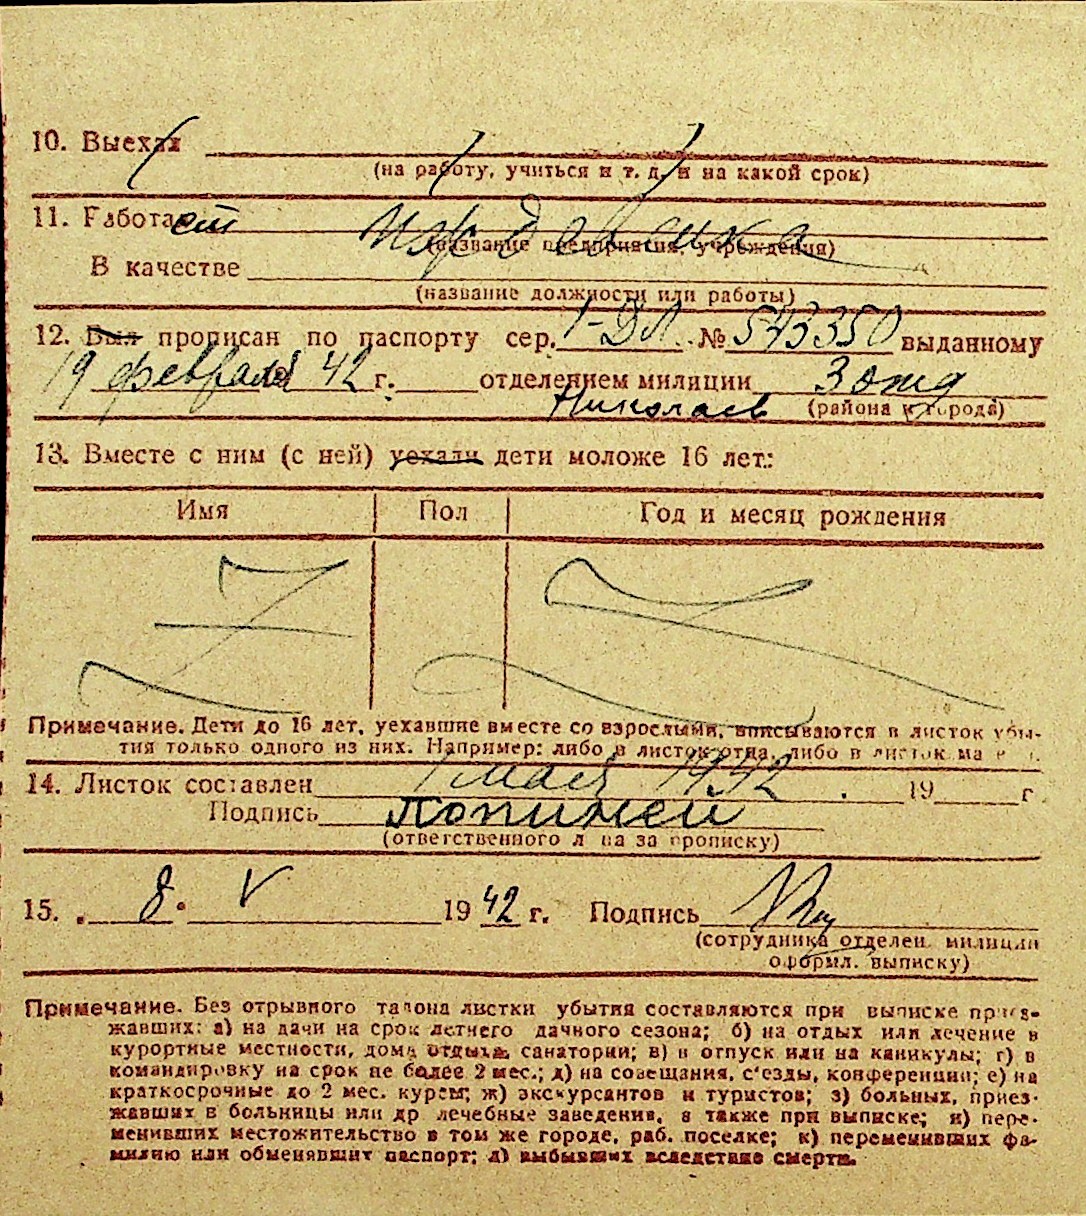 10. Выехал
(на работу, учиться и т. д. и на какой срок)
11. Работает иждевенка
(название предприятия, учреждения)
В качестве
(название должности или работы)
12. Был прописан по паспорту сер. 1-ДЛ. № 543350 выданному
19 февраля 42 г. отделением милиции 3 отд
Николаев (района и города)
13. Вместе с ним (с ней) уехали дети моложе 16 лет:
Имя Пол Год и месяц рождения
Примечание. Дети до 16 лет, уехавшие вместе со взрослыми, вписываются в листок убы-
тия только одного из них. Например: либо в листок отца, либо в листок
14. Листок составлен 1 мая 1942 . 19 г
Подпись
(ответственного л ца за прописку)
15. 8 V 1942 г. Подпись
(сотрудника отделен. милиции
оформл. выписку)
Примечание. Без отрывного талона листки убытия составляются при выписке приез-
жавших: а) на дачи на срок летнего дачного сезона; б) на отдых или лечение в
курортные местности, дома отдыха, санатории; в) в отпуск или на каникулы; г) в
командировку на срок не более 2 мес.; д) на совещания, с'езды, конференции; е) на
краткосрочные до 2 мес. курсы; ж) экскурсантов и туристов; з) больных, приез-
жавших в больницы или др лечебные заведения, а также при выписке; и) пере-
менивших местожительство в том же городе, раб. поселке; к) переменивших фа-
милию или обменявших паспорт; л) выбывших вследствие смерти.